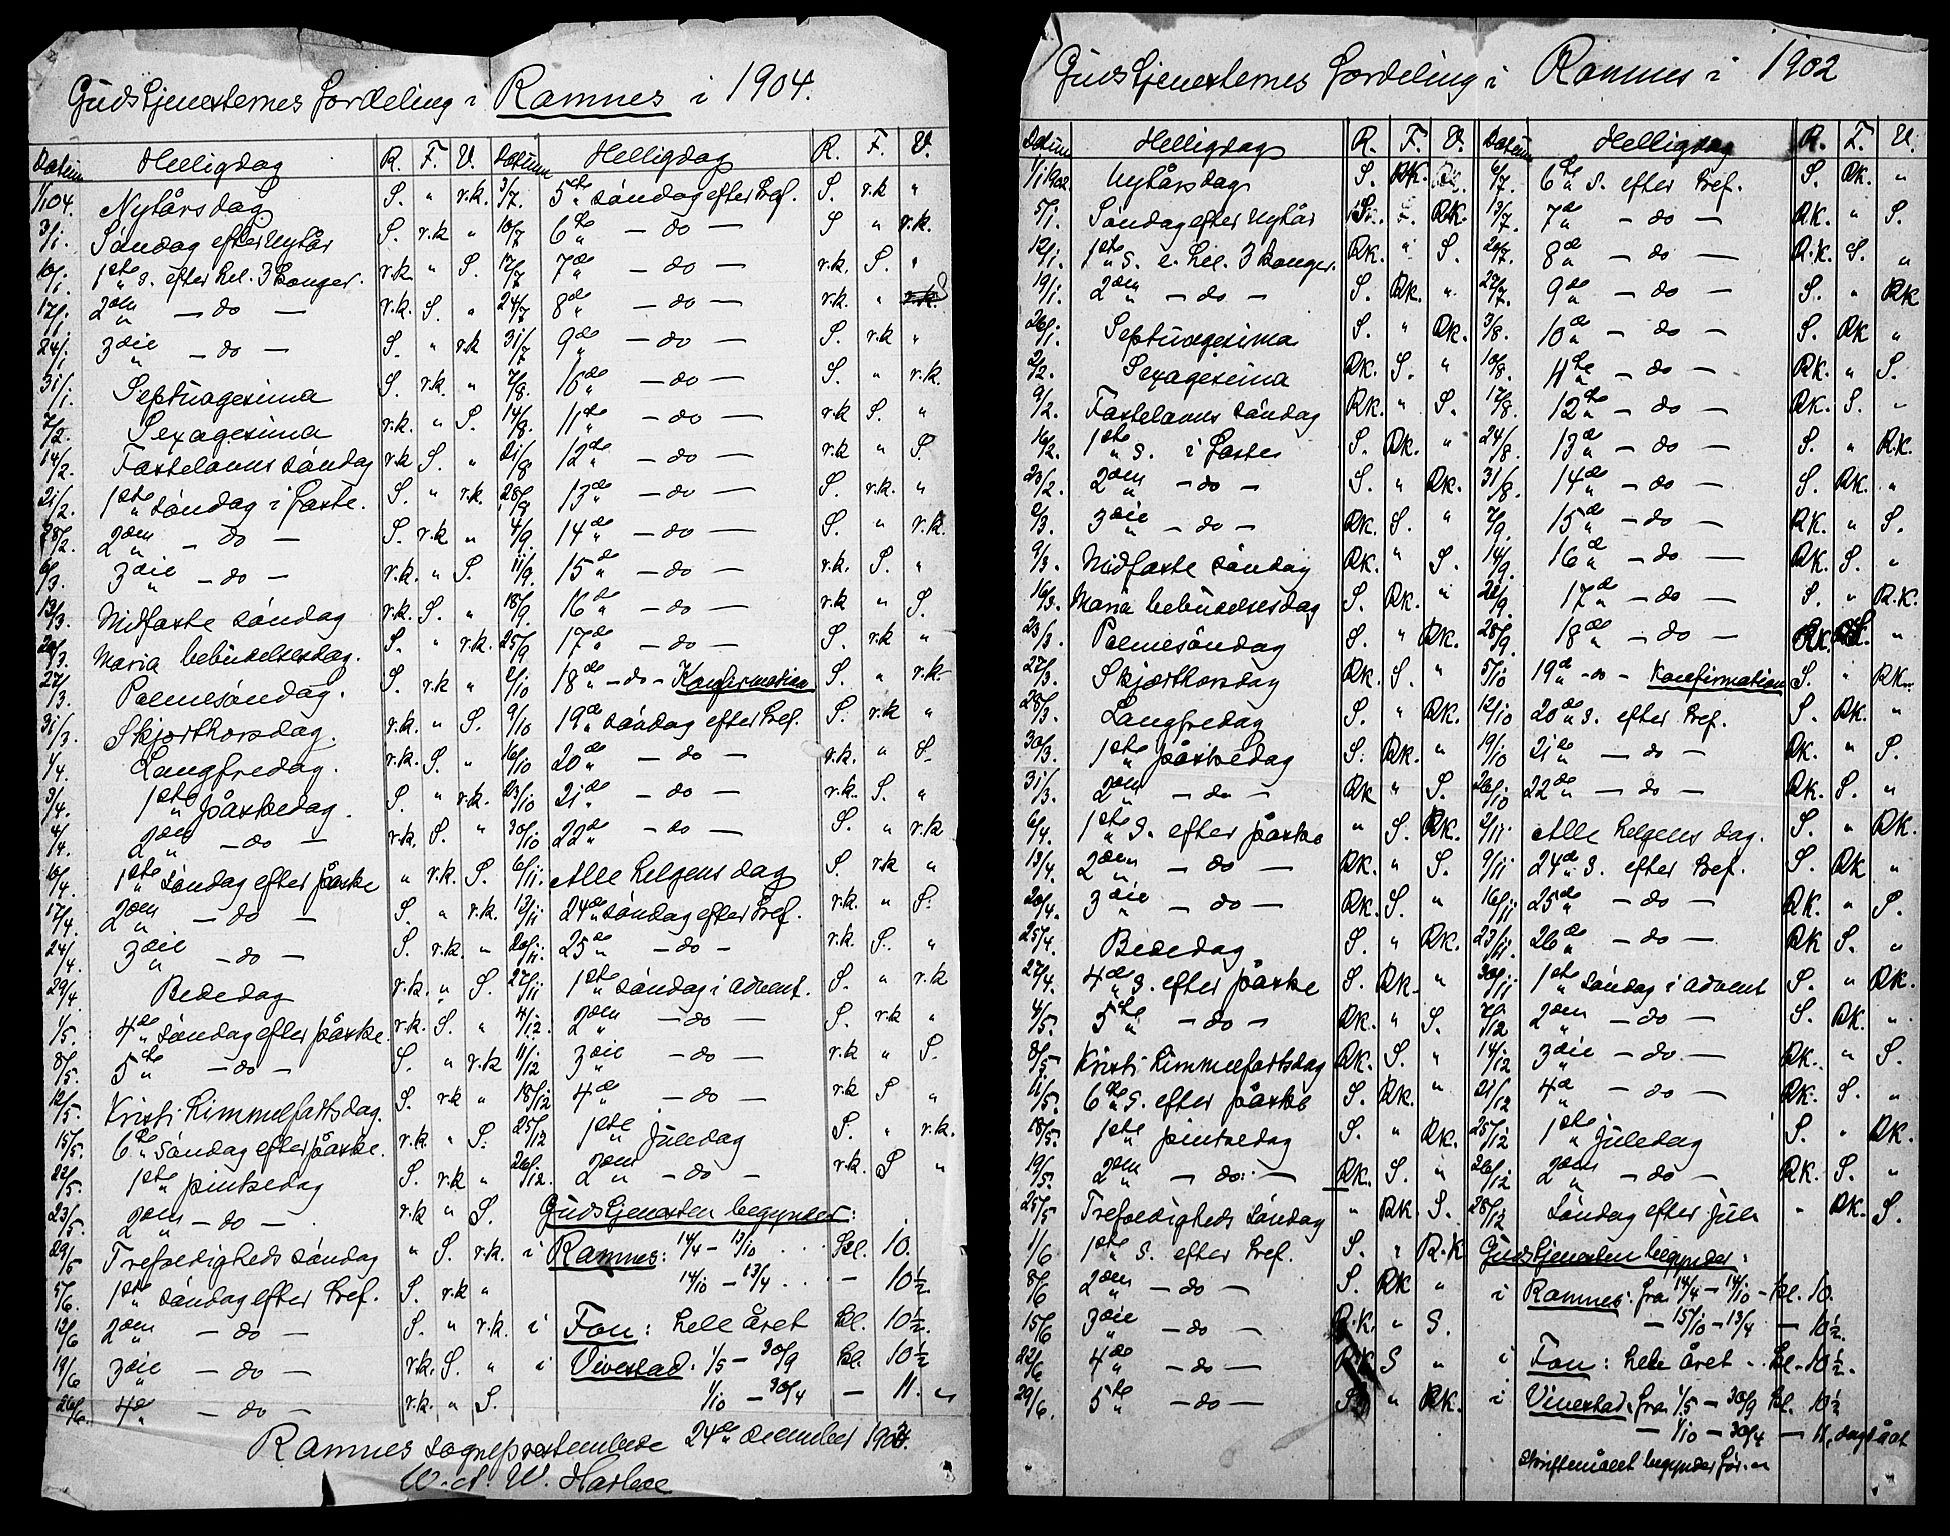 Gudstjenesternes fordeling i Ramnes i 1904.
Datum Helligdag R. F. V. Datum Helligdag R. F. V.
1/1 04. Nytårsdag S. " r.k. 3/7. 5te søndag efter tref. S. r.k "
3/1. Søndag efter nytår S. r.k " 10/7 6te — do — S " r.k.
10/1. 1ste s. efter hel. 3 konger. r.k. " S. 17/7 7de — do — r.k. S. "
17/1 2den — do — r.k. S. " 24/7 8de — do — r.k. " S
24/1 3die — do — S. " r.k 31/7 9de — do — S. r.k "
31/1. Septuagesima S. r.k " 7/8. 10de — do — S. " r.k.
7/2. Sexagesima r.k. " S. 14/8. 11te — do — r.k S. "
14/2. Fastelavns søndag r.k S. " 21/8 12te — do — r.k " S
21/2. 1ste søndag i faste. S. " r.k. 28/8 13de — do — S. r.k. "
28/2. 2den — do — S. r.k " 4/9. 14de — do — S. " r.k
6/3. 3die — do — r.k. " S. 11/9. 15de — do — r.k. S. "
13/3. Midfaste søndag r.k. S. " 18/9. 16de — do — r.k " S.
20/3. Maria bebudelsesdag. S. " r.k. 25/9 17de — do — S. r.k "
27/3 Palmesøndag. S. r.k " 2/10 18de — do — Konfirmation S. " r.k-
31/3. Skjærthorsdag. r.k. " S. 9/10 19de søndag efter tref. S. r.k "
1/4. Langfredag. r.k. S. " 16/10 20de — do — r.k. " S.
3/4. 1ste påskedag. S. " r.k. 23/10 21de — do — r.k. S. "
4/4. 2den — do — r.k. S. " 30/10 22de — do — S. " r.k
10/4. 1ste søndag efter påske " r.k. S. 6/11. Alle helgens dag S. r.k "
17/4. 2den — do — S. " r.k. 13/11 24de søndag efter tref. r.k. " S.
24/4. 3die — do — S. r.k. " 20/11. 25de — do — r.k. S. "
29/4. Bededag r.k. " S. 27/11 1ste søndag i advent. S. " r.k
1/5. 4de søndag efter påske. r.k. S. " 4/12. 2den — do — S. r.k "
8/5. 5te — do — S. " r.k 11/12 3die — do — r.k " S.
12/5. Kristi himmelfartsdag. S. r.k " 18/12 4de — do — r.k S "
15/5. 6te søndag efter påske. r.k. " S. 25/12 1ste juledag S. " r.k.
22/5. 1ste pintsedag S. r.k " 26/12. 2den — do — r.k. S "
23/5. 2den — do — r.k " S. Gudstjenesten begynder:
29/5 Trefoldigheds søndag " S. r.k. i Ramnes: 14/4 — 13/10 . . . kl. 10.
5/6. 1ste søndag efter tref. S. r.k " 14/10 — 13/4 . . . — 10½.
12/6 2den — do — S. " r.k. i Fon: hele året kl. 10½.
19/6 3die — do — r.k. S. " i Vivestad: 1/5 — 30/9 kl. 10½
26/6. 4de — do — r.k. " S. 1/10 — 30/4 — 11.
Ramnes sogneprestembede 24de december 1903.
W. A. W. Harboe
Gudstjenesternes fordeling i Ramnes i 1902
Datum Helligdag R. F. V. Datum Helligdag R. F. V.
1/1 1902. Nytårsdag S. RK. " 6/7. 6te s. efter tref. S. RK. "
5/1. Søndag efter nytår S. " RK. 13/7. 7de — do — RK. " S.
12/1. 1ste s. e. hel. 3 konger. RK. " S. 20/7. 8de — do — R.K. S. "
19/1. 2den — do — S. RK. " 27/7. 9de — do — S. " RK
26/1. Septuagesima S. " RK. 3/8. 10de — do — S. RK "
2/2. Sexagesima RK. S. " 10/8. 11te — do — RK. " S.
9/2. Fastelavns søndag RK. " S. 17/8. 12te — do — RK. S. "
16/2. 1ste s. i faste S. RK. " 24/8. 13de — do — S. " R.K.
23/2. 2den — do — S. " RK. 31/8. 14de — do — S. RK. "
2/3. 3die — do — RK. S. " 7/9. 15de — do — RK. " S.
9/3. Midfaste søndag RK. " S. 14/9. 16de — do — RK. S. "
16/3. Maria bebudelsesdag S. RK. " 21/9. 17de — do — S. " R.K.
23/3. Palmesøndag S. " RK. 28/9. 18de — do — RK. S. "
27/3. Skjærthorsdag RK. S. " 5/10 19de — do — Konfirmation S. " RK.
28/3. Langfredag S. " RK. 12/10 20de s. efter tref. S. RK. "
30/3 1ste påskedag S. RK. " 19/10 21de — do — RK. " S.
31/3. 2den — do — RK " S. 26/10 22de — do — RK. S. "
6/4. 1ste s. efter påske " S. RK. 2/11. Alle helgens dag. S. " RK.
13/4. 2den — do — RK. " S. 9/11 24de s. efter tref. S. RK "
20/4. 3die — do — RK. S. " 16/11 25de — do — RK. " S.
25/4. Bededag S. " RK. 23/11. 26de — do — RK S. "
27/4. 4de s. efter påske S. RK. " 30/11 1ste søndag i advent S. " RK.
4/5. 5te — do — RK. " S. 7/12 2den — do — S. RK. "
8/5. Kristi himmelfartsdag RK. S. " 14/12 3die — do — RK. " S.
11/5. 6te s. efter påske S. RK. " 21/12 4de — do — RK. S. "
18/5. 1ste pintsedag S. " RK. 25/12 1ste juledag S. " RK.
19/5. 2den — do — RK. S. " 26/12 2den — do — RK. S. "
25/5 Trefoldigheds søndag " RK. S. 28/12 Søndag efter jul " RK. S.
1/6 1ste s. efter tref. S. " R.K Gudstjenesten begynder:
8/6 2den — do — S. RK " i Ramnes: fra 14/4 — 14/10 — kl. 10.
15/6 3die — do — R.K. " S. — 15/10 — 13/4 — 10½.
22/6 4de — do — RK S " i Fon: hele året — kl. 10½.
29/6. 5te — do — S " RK. i Vivestad: fra 1/5 — 30/9 kl. 10½
— 1/10 — 30/4 — 11.
Skriftemålet begynder før